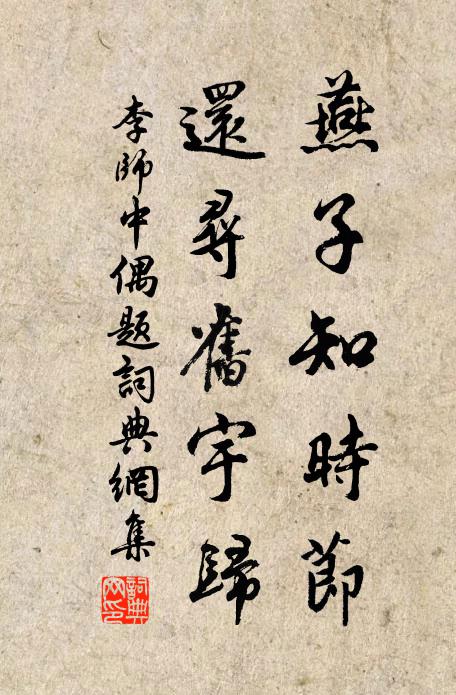 燕子知時節
還尋舊宇歸
李師中偶題詞典網集
詞典
网印